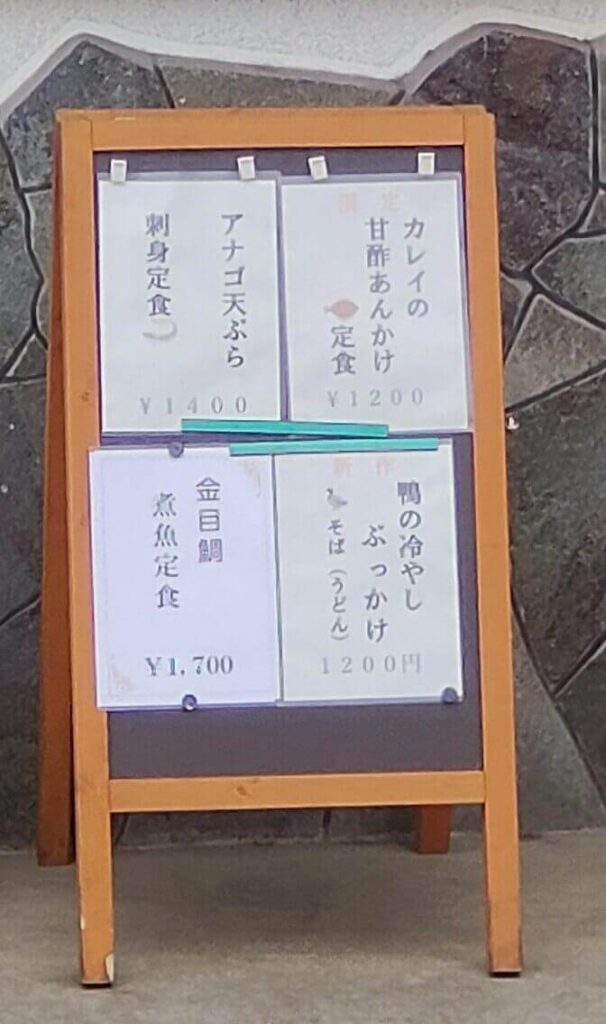 限定
カレイの
甘酢あんかけ
定食
¥1200
アナゴ天ぷら
刺身定食
¥1400
新作
鴨の冷やし
ぶっかけ
そば(うどん)
1200円
金目鯛
煮魚定食
¥1,700